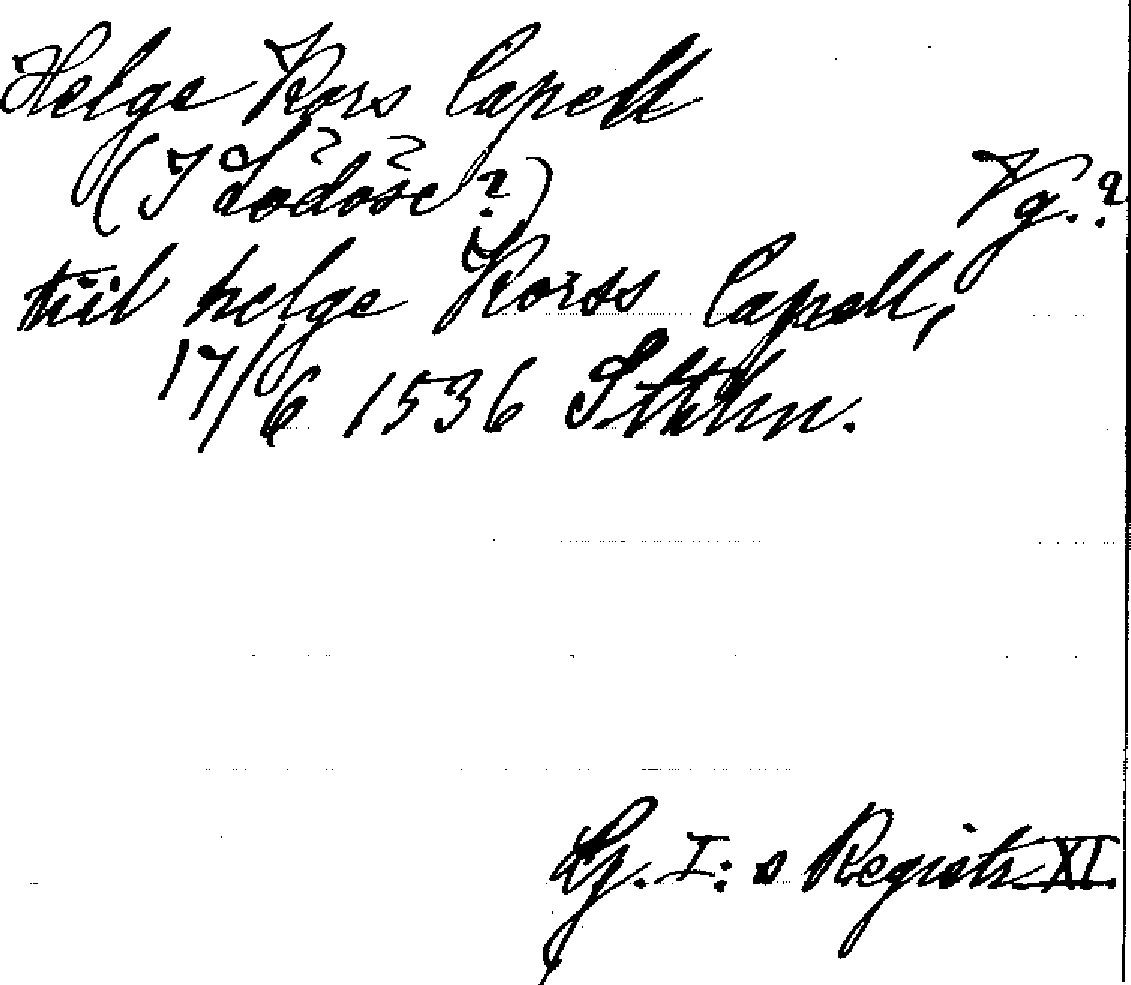 Helge Kors Capell
(I Lödöse?) Vg.?
tiil helge Korss Capell,
17/6 1536 Sthlm.
G. I:s Registr. XI.